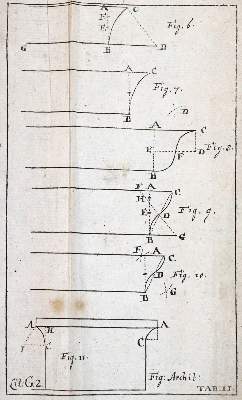 A C
F
E
Fig. 6.
G B D
A C
Fig. 7.
B D
A C
E F D
Fig. 8.
B
F A C
H
E D
Fig. 9.
B G
F A C
D
Fig. 10.
B G
A H A
C
I
Fig. 11.
Fig: Archit:
Lit. G2. TAB. II.